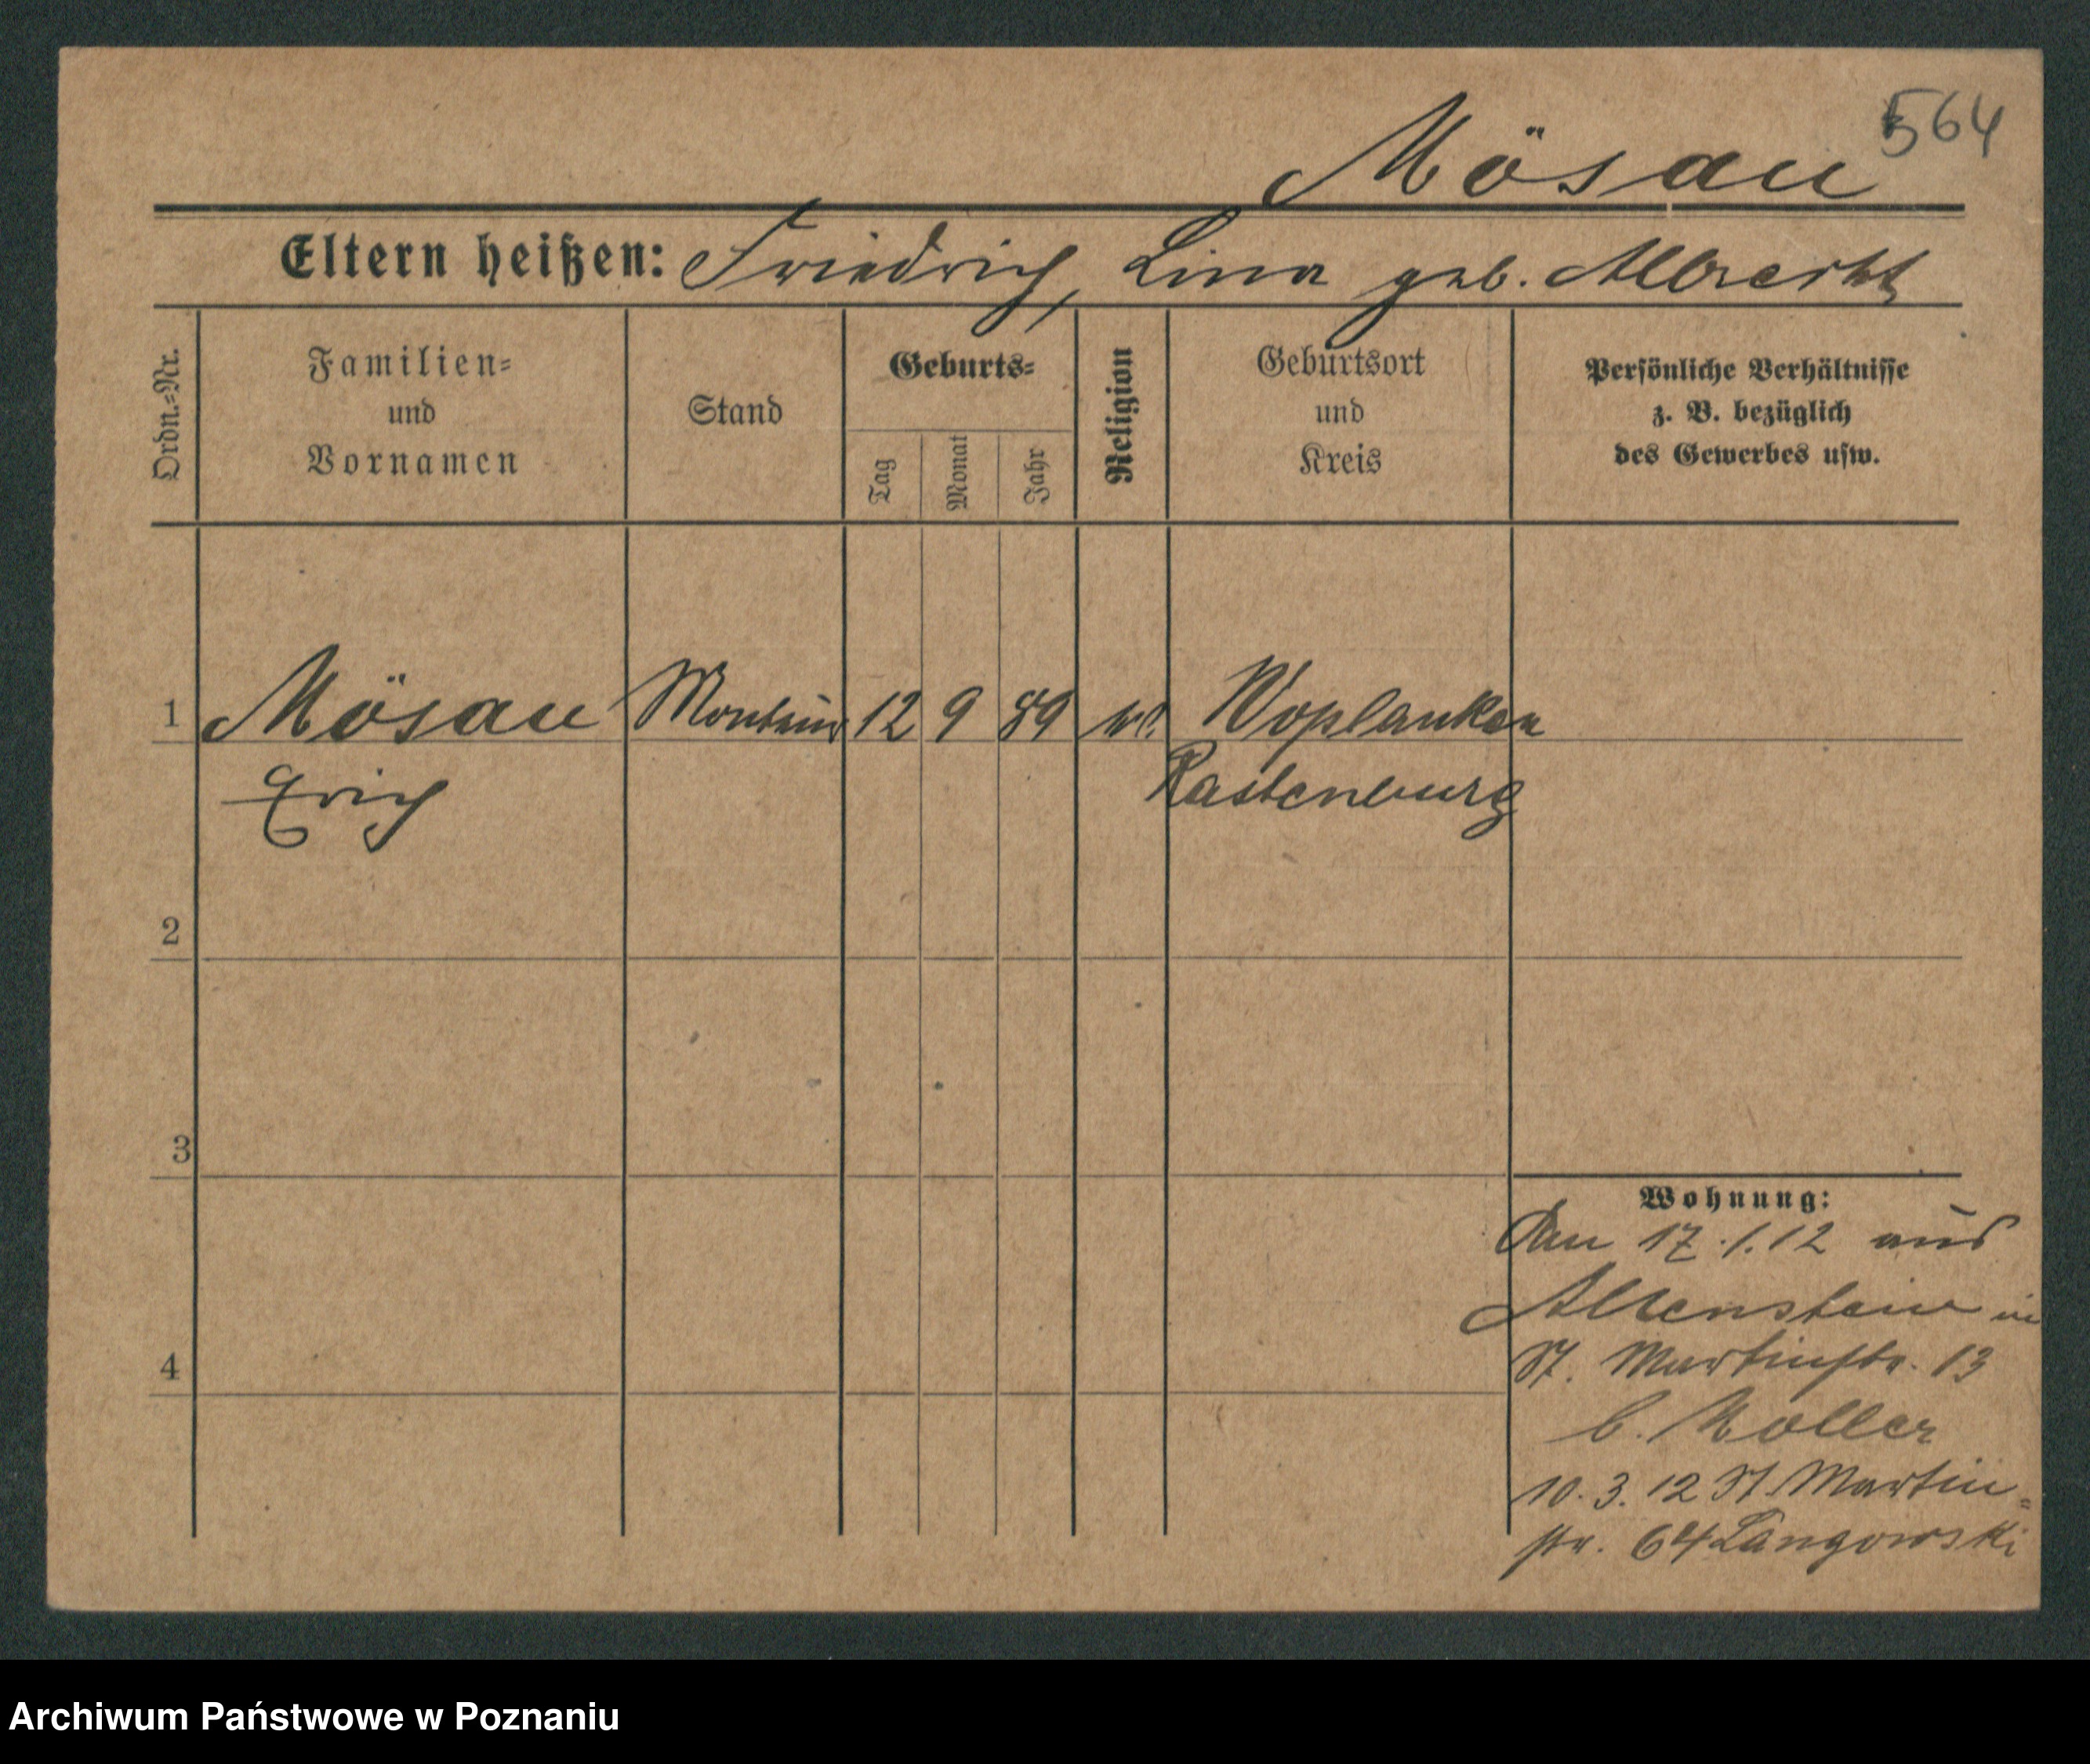 564
Mösau
Eltern heißen: Friedrich, Lina geb. Albrecht
Ordn.-Nr.
Familien-
und
Vornamen
Stand
Geburts-
Tag
Monat
Jahr
Religion
Geburtsort
und
Kreis
Persönliche Verhältnisse
z. B. bezüglich
des Gewerbes usw.
1 Mösau Monteur 12 9 89 Woplauken
Erich Rastenburg
2
3
4
Wohnung:
17.1.12 aus
Allenstein in
St. Martinstr. 13
b. Moller
10.3.12 St. Martin-
str. 64 Langowski
Archiwum Państwowe w Poznaniu